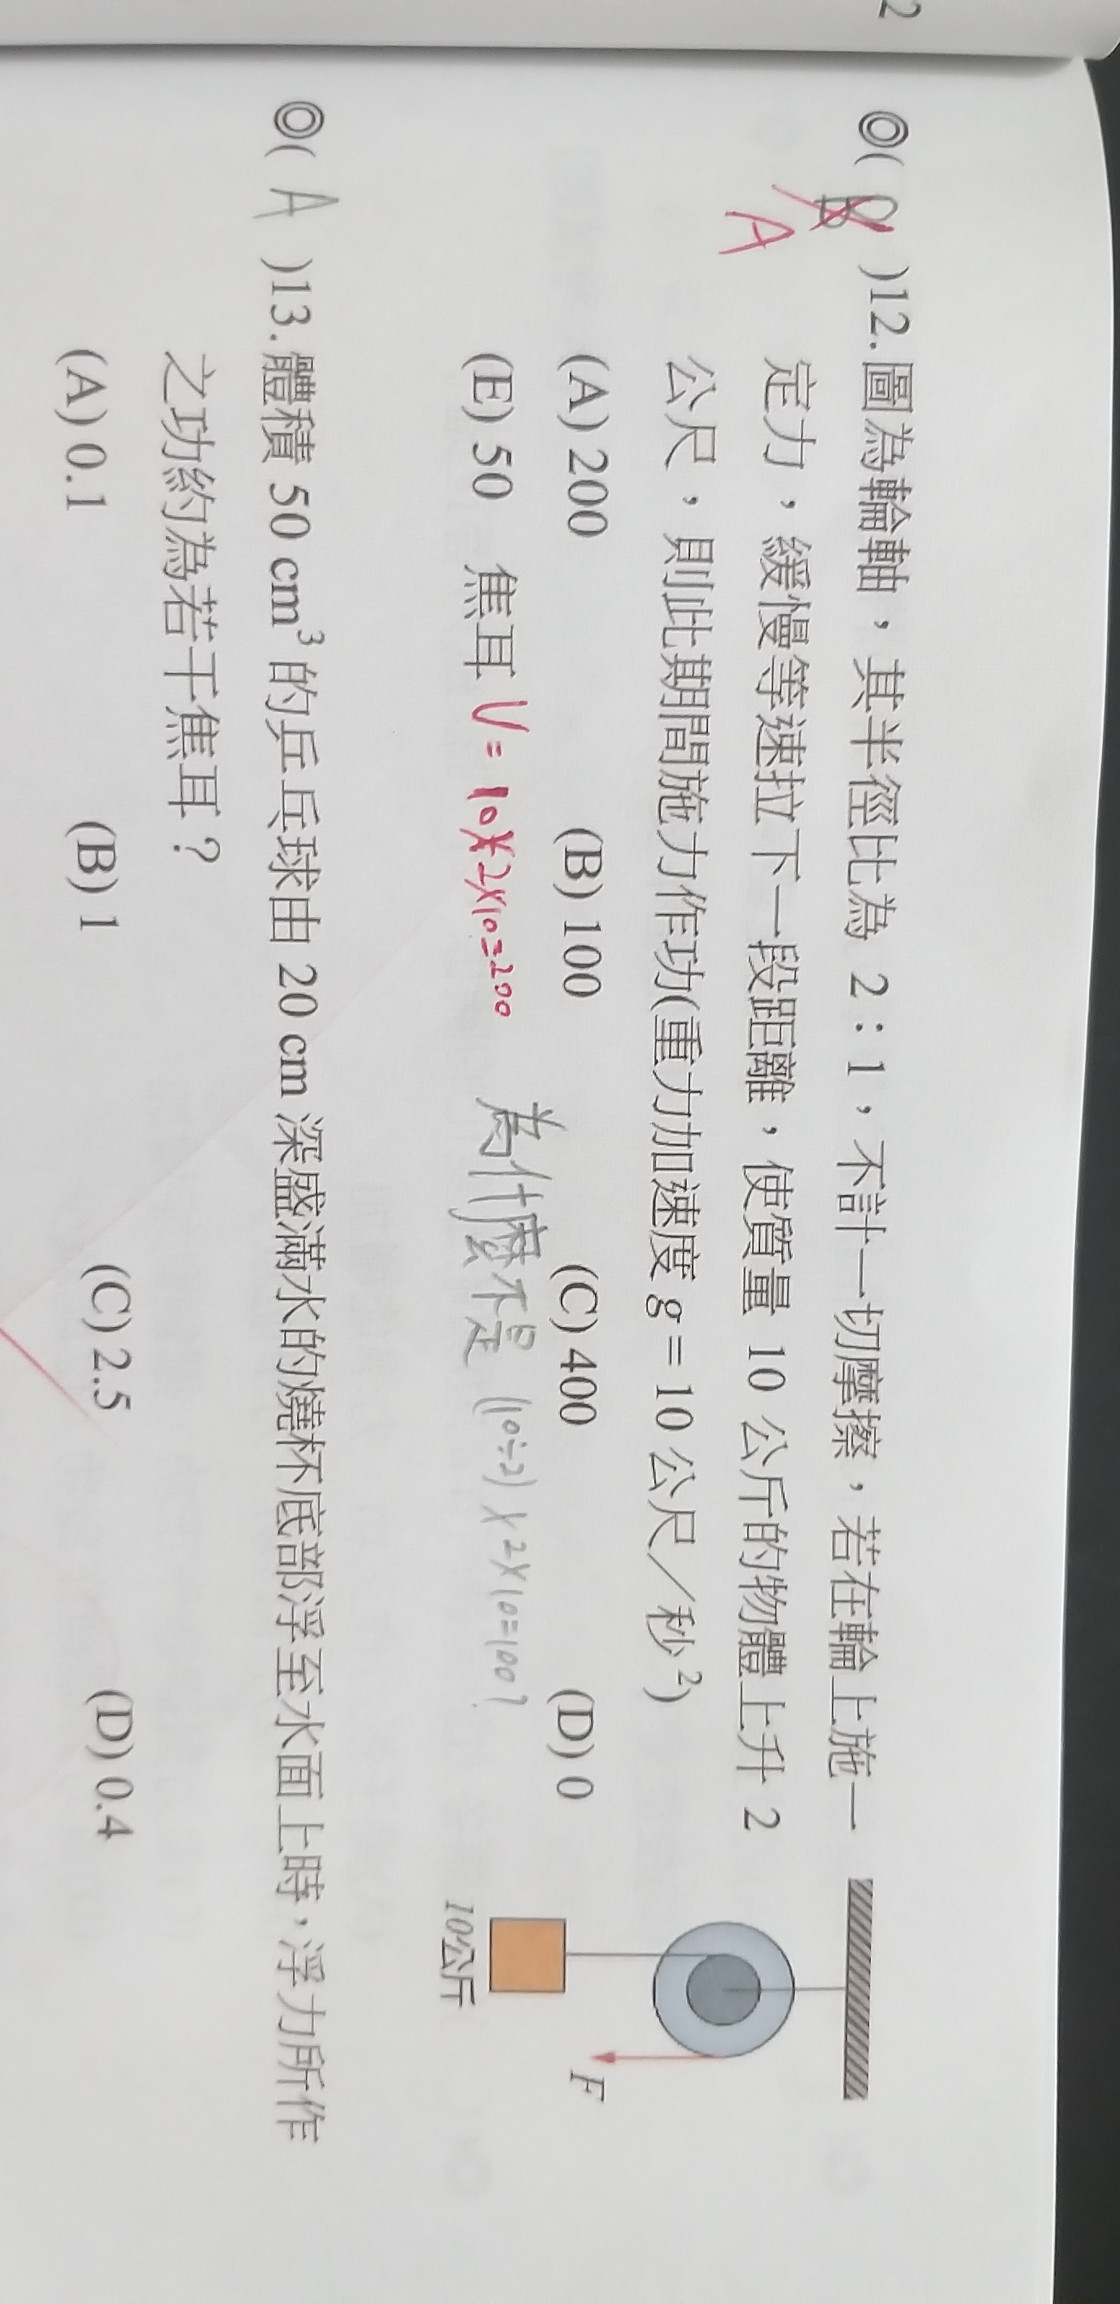 2
◎( A )12.圖為輪軸，其半徑比為 2：1，不計一切摩擦，若在輪上施一
定力，緩慢等速拉下一段距離，使質量 10 公斤的物體上升 2
公尺，則此期間施力作功(重力加速度 g = 10 公尺／秒²)
(A) 200 (B) 100 (C) 400 (D) 0
(E) 50 焦耳 U = 10×2×10=200 為什麼不是 (10÷2)×2×10=100?
F
10公斤
◎( A )13.體積 50 cm³ 的乒乓球由 20 cm 深盛滿水的燒杯底部浮至水面上時，浮力所作
之功約為若干焦耳？
(A) 0.1 (B) 1 (C) 2.5 (D) 0.4